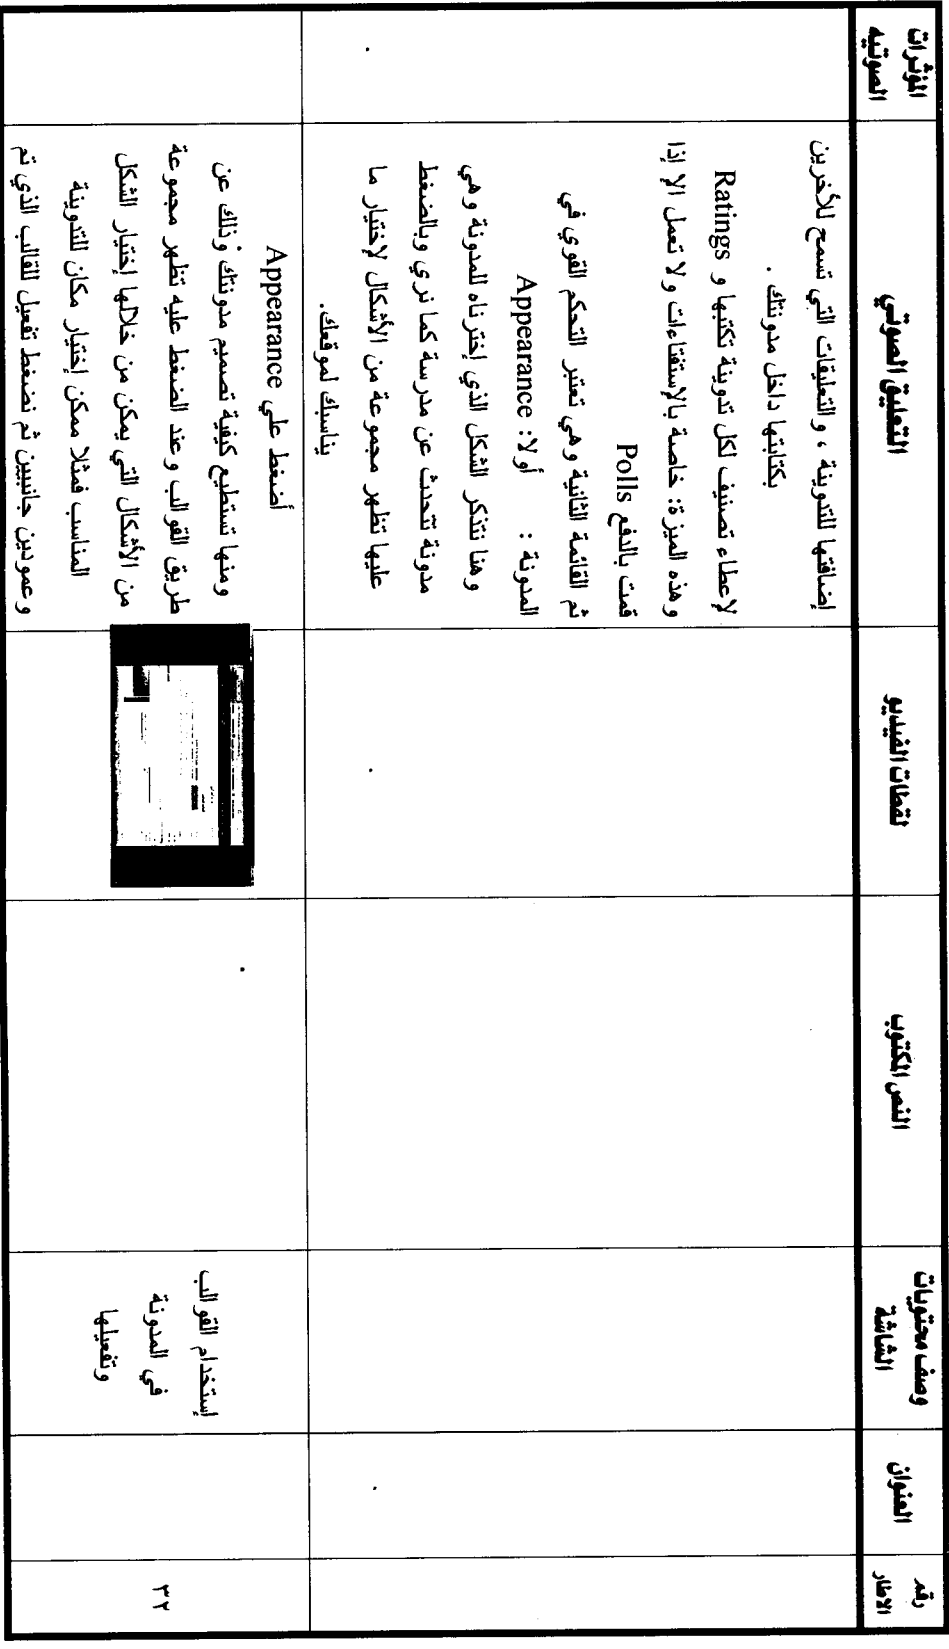 رقم
الاطار
العنوان
وصف محتويات
الشاشة
النص المكتوب
لقطات الفيديو
التعليق الصوتي
المؤثرات
الصوتيه
إضافتها للتدوينة ، والتعليقات التي تسمح للأخرين
بكتابتها داخل مدونتك .
لإعطاء تصنيف لكل تدوينة تكتبها و Ratings
وهذه الميزة: خاصة بالإستفتاءات ولا تعمل الا إذا
قمت بالدفع Polls
ثم القائمة الثانية وهي تعتبر التحكم القوي في
المدونة : أولا: Appearance
وهنا نتذكر الشكل الذي إخترناه للمدونة وهي
مدونة تتحدث عن مدرسة كما نري وبالضغط
عليها تظهر مجموعة من الأشكال لإختيار ما
يناسبك لموقعك.
٣٢
إستخدام القوالب
في المدونة
وتفعيلها
أضغط علي Appearance
ومنها تستطيع كيفية تصميم مدونتك وذلك عن
طريق القوالب وعند الضغط عليه تظهر مجموعة
من الأشكال التي يمكن من خلالها إختيار الشكل
المناسب فمثلا ممكن إختيار مكان للتدوينة
وعمودين جانبيين ثم نضغط تفعيل للقالب الذي تم